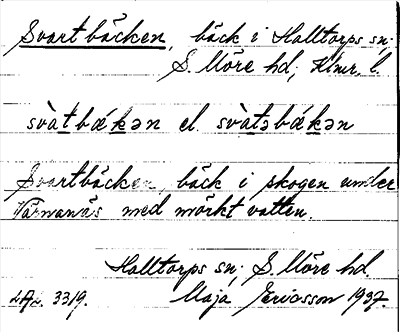 Svartbäcken, bäck i Halltorps sn;
S. Möre hd; Klmr. l.
svàtbǽkən el. svàtəbǽkən
Svartbäcken, bäck i skogen under
Värnanäs med mörkt vatten.
Halltorps sn; S. Möre hd.
3319. Maja Ericsson 1937.